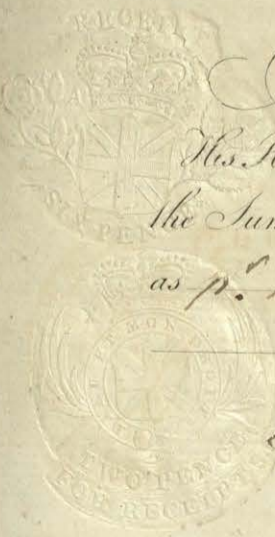 RECEIPT
SIX PENCE
His R
the Sum
as pr.
TWO PENCE
FOR RECEIPTS